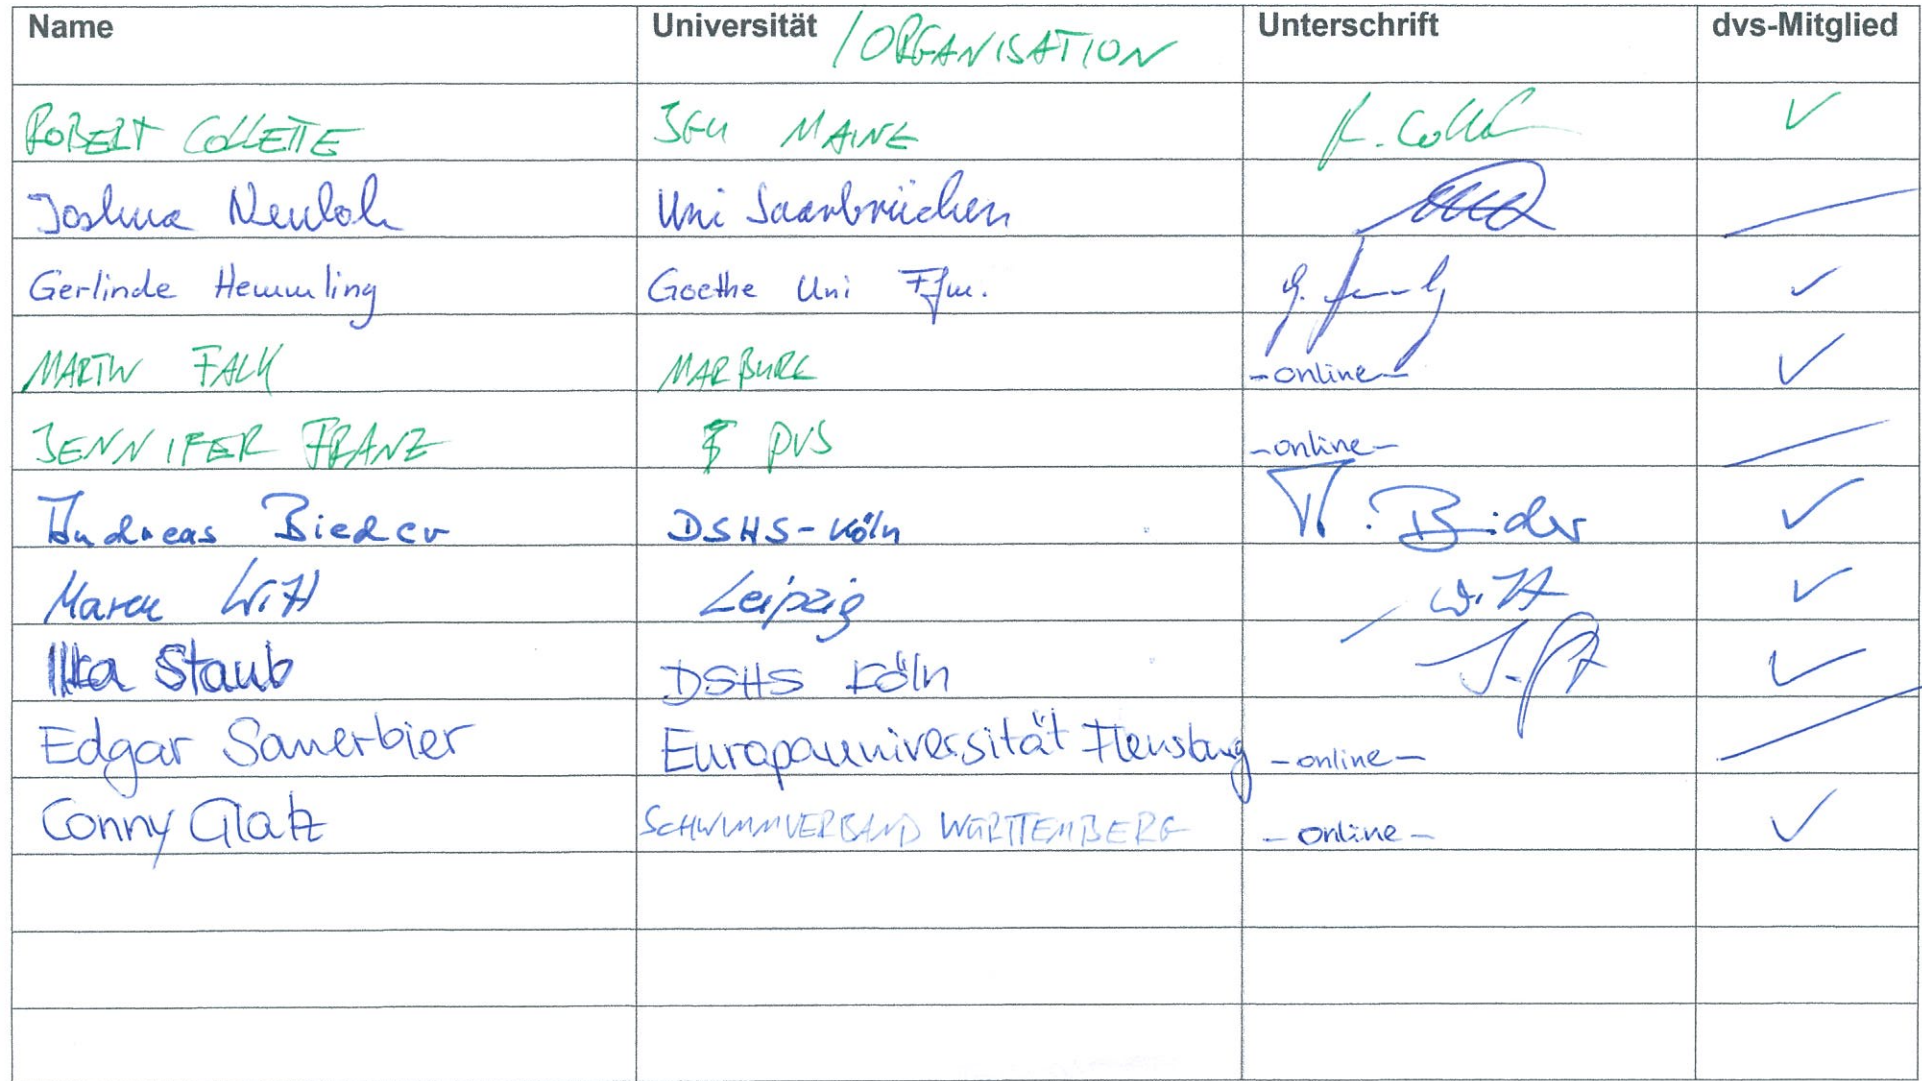 Name Universität /ORGANISATION Unterschrift dvs-Mitglied
ROBERT COLLETTE JGU MAINZ R. Coll ✓
Joshua Neuloh Uni Saarbrücken
Gerlinde Hemmling Goethe Uni Ffm. ✓
MARTIN FALK MARBURG -online- ✓
JENNIFER FRANZ DVS -online-
Andreas Bieder DSHS-Köln A. Bieder ✓
Maren Witt Leipzig Witt ✓
Ilka Staub DSHS Köln ✓
Edgar Sauerbier Europauniversität Flensburg -online-
Conny Glatz SCHWIMMVERBAND WÜRTTEMBERG -online- ✓